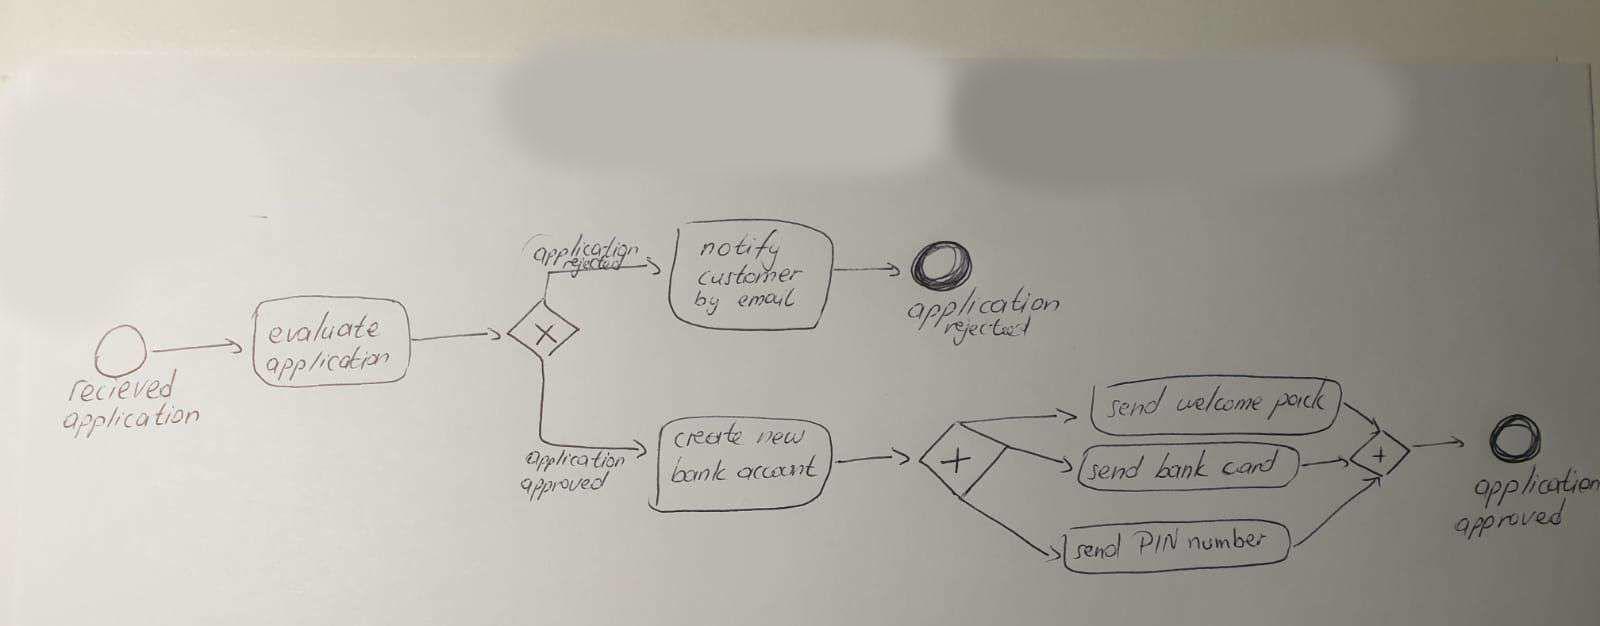 recieved
application
evaluate
application
application
rejected
notify
customer
by email
application
rejected
application
approved
create new
bank account
send welcome pack
send bank card
send PIN number
application
approved